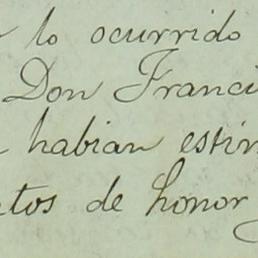 lo ocurrido
Don Franci
habian estim
tos de honor